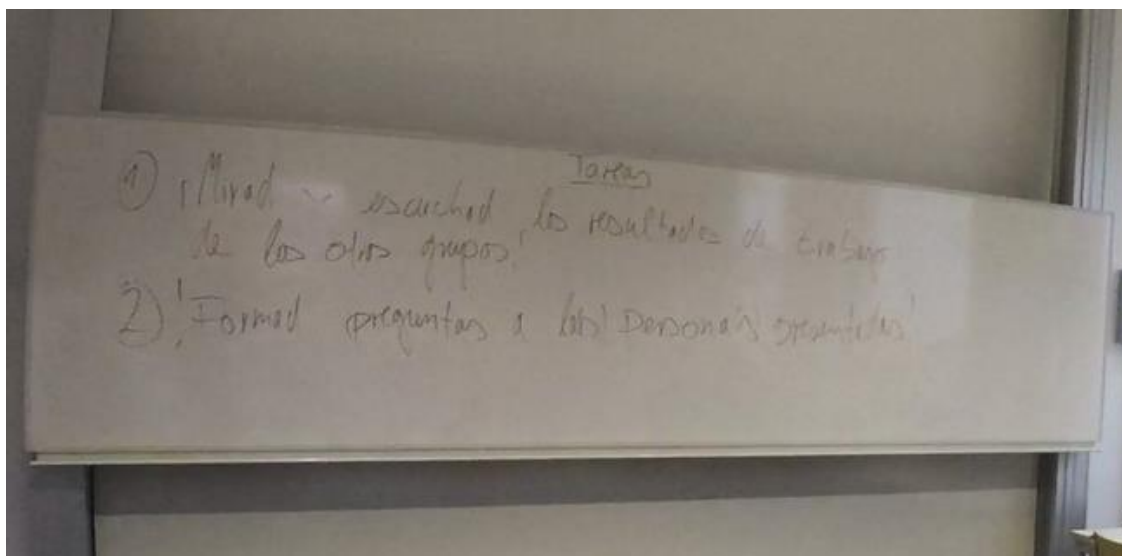 Tareas
1) ¡Mirad y escuchad los resultados de trabajo
de los otros grupos!
2) ¡Formad preguntas a las personas presentadas!